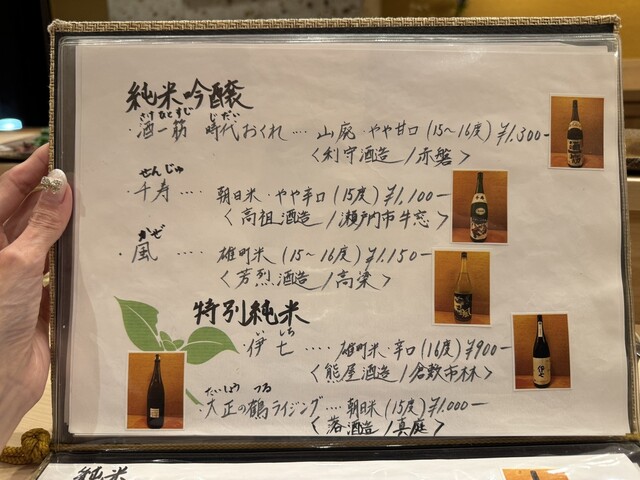 純米吟醸
さけひとすじ じだい
・酒一筋 時代おくれ‥‥ 山廃・やや甘口 (15〜16度) ¥1.300-
〈利守酒造/赤磐〉
せんじゅ
・千寿‥‥ 朝日米・やや辛口 (15度) ¥1,100-
〈高祖酒造/瀬戸内市牛窓〉
かぜ
・風 ‥‥ 雄町米 (15〜16度) ¥1.150-
〈芳烈酒造/高梁〉
特別純米
いしち
・伊七 ‥‥ 雄町米・辛口 (16度) ¥900-
〈熊屋酒造/倉敷市林〉
たいしょう つる
・大正の鶴ライジング‥‥ 朝日米 (15度) ¥1.000-
〈落酒造/真庭〉
純米